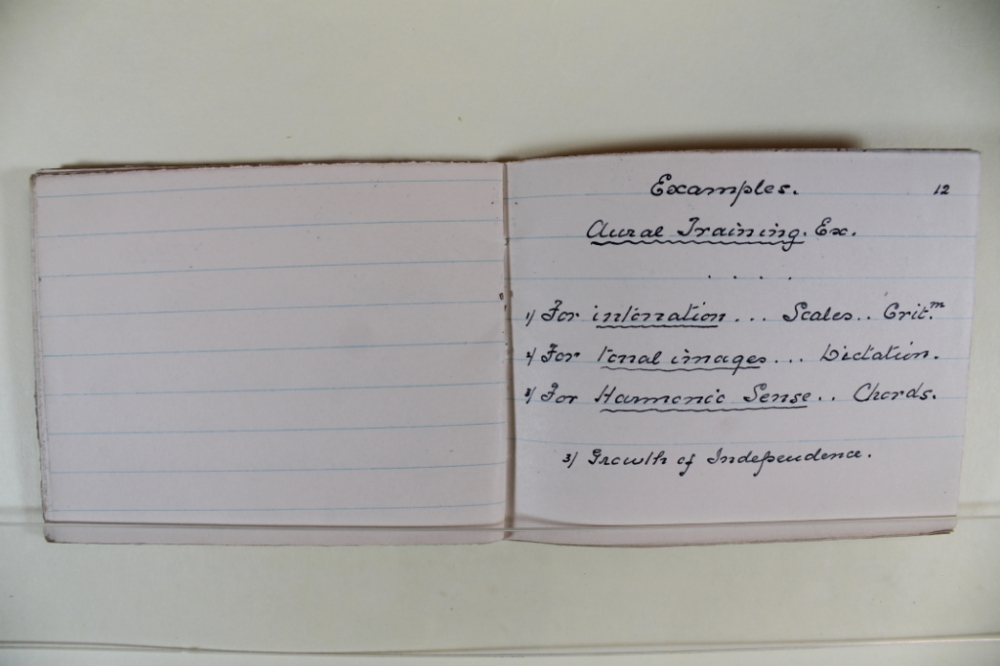 Examples. 12
Aural Training. Ex.
. . . .
1) For intonation ... Scales.. Crit.m
2) For tonal images ... Dictation.
3) For Harmonic Sense.. Chords.
3) Growth of Independence.